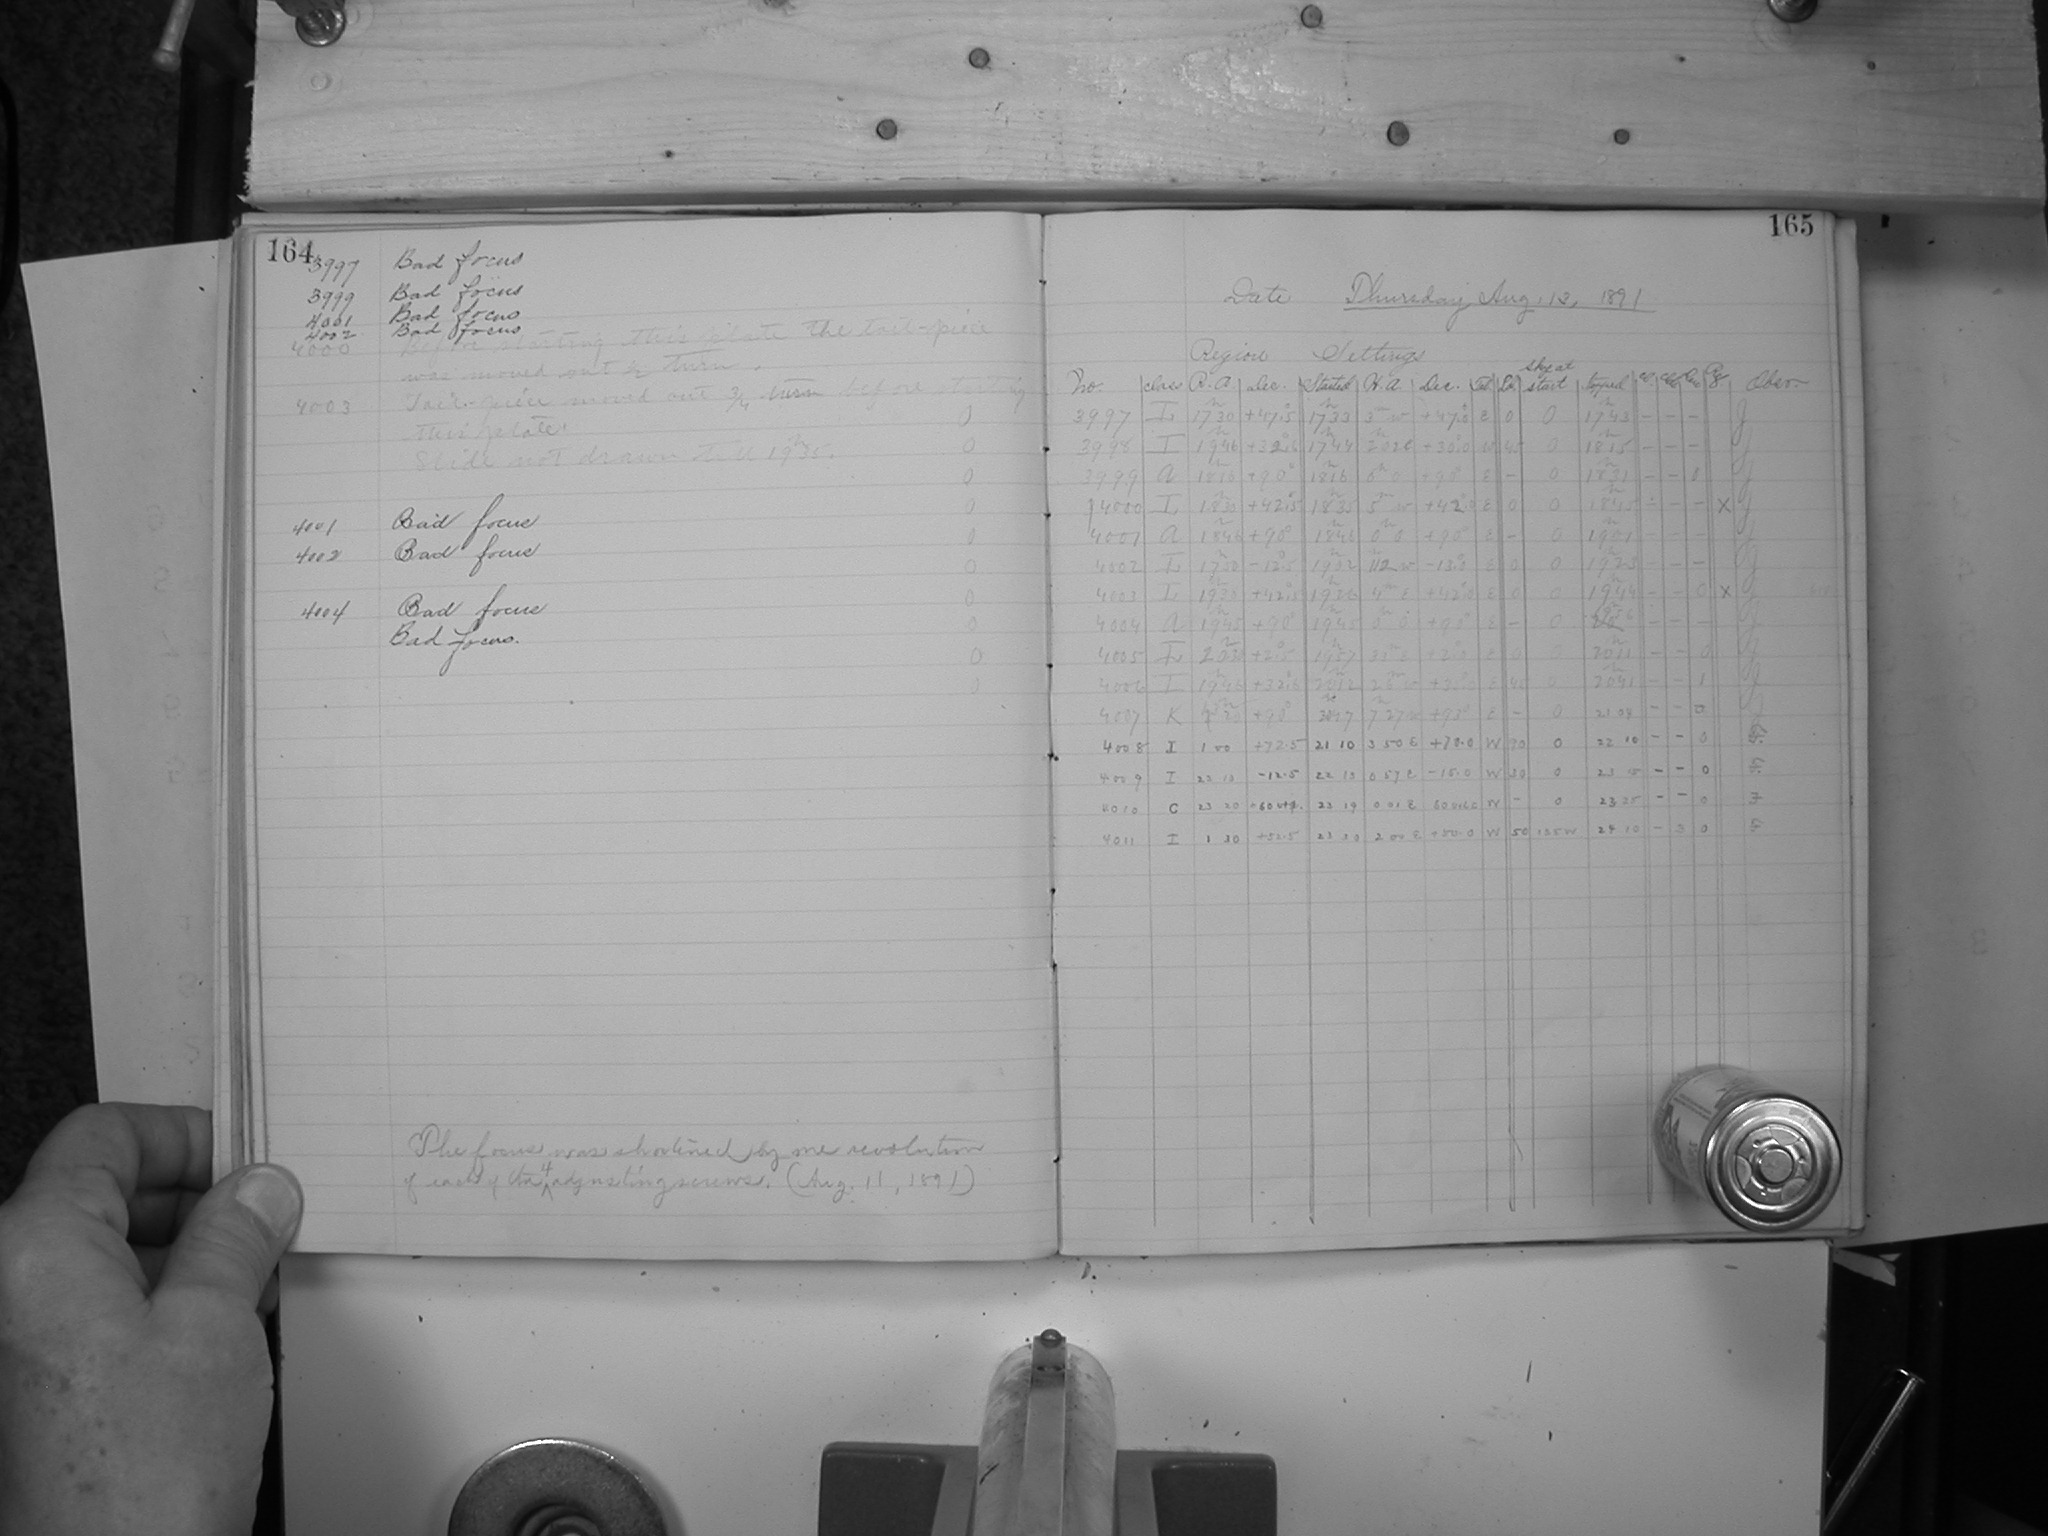 164
3997 Bad focus
3999 Bad focus
4001 Bad focus
4002 Bad focus
4000 Before starting this plate the tail-piece
was moved out ½ turn.
4003 Tail-piece moved out ¾ turn before starting
this plate.
Slide not drawn till 19h 36.
4001 Bad focus
4002 Bad focus
4004 Bad focus
Bad focus.
The focus was shortened by one revolution
of each of the 4 adjusting screws. (Aug. 11, 1891)
165
Date Thursday, Aug. 13, 1891
Region Settings
No. Class R.A. Dec. Started H.A. Dec. start stopped Obser
3997 I 17 30 +47.5 17 33 3 w +47.0 E 0 0 17 43 - - - J
3998 I 19 46 +32.6 17 44 2 02 E +30.0 W 45 0 18 15 - - - J
3999 A 18 16 +90° 18 16 6 0 +90° E - 0 18 31 - - 0 J
4000 I 18 30 +42.5 18 35 5 w +42.0 E 0 0 18 45 - - - X J
4001 A 18 46 +90° 18 46 0 0 +90° E - 0 19 01 - - - J
4002 I 17 50 -12.5 19 02 112 w -13.0 E 0 0 19 23 - - - J
4003 I 19 30 +42.5 19 26 4 E +42.0 E 0 0 19 44 - - 0 X J
4004 A 19 45 +90° 19 45 0 0 +90° E - 0 - - - J
4005 I 20 30 +2.5 19 57 E +2.0 E 0 0 20 11 - - 0 J
4006 I 19 46 +32.6 20 12 26 w +30.0 E 45 0 20 41 - - 1 J
4007 K +90° 20 47 7 27 w +90° E - 0 21 04 - - J
4008 I 1 00 +72.5 21 10 3 50 E +70.0 W 90 0 22 10 - - 0
4009 I 23 10 -12.5 22 13 0 57 E -15.0 W 30 0 23 15 - - 0
4010 C 23 20 23 19 0 01 E W - 0 23 25 - - 0 F
4011 I 1 30 +52.5 23 30 2 00 E +50.0 W 50 135W 24 10 - 3 0 F